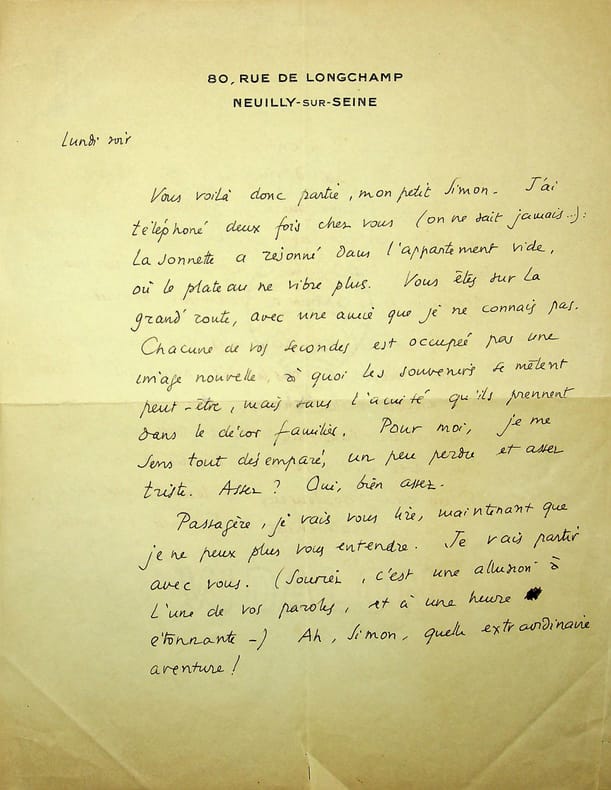 80, RUE DE LONGCHAMP
NEUILLY-SUR-SEINE
Lundi soir
Vous voilà donc partie, mon petit Simon. J'ai
téléphoné deux fois chez vous (on ne sait jamais..):
La sonnette a résonné dans l'appartement vide,
où le plateau ne vibre plus. Vous êtes sur la
grand' route, avec une amie que je ne connais pas.
Chacune de vos secondes est occupée par une
image nouvelle, à quoi les souvenirs se mêlent
peut-être, mais sans l'acuité qu'ils prennent
dans le décor familier. Pour moi, je me
sens tout désemparé, un peu perdu et assez
triste. Assez ? Oui, bien assez.
Passagère, je vais vous lire, maintenant que
je ne peux plus vous entendre. Je vais partir
avec vous. (Souriez, c'est une allusion à
L'une de vos paroles, et à une heure
étonnante -) Ah, Simon, quelle extraordinaire
aventure !